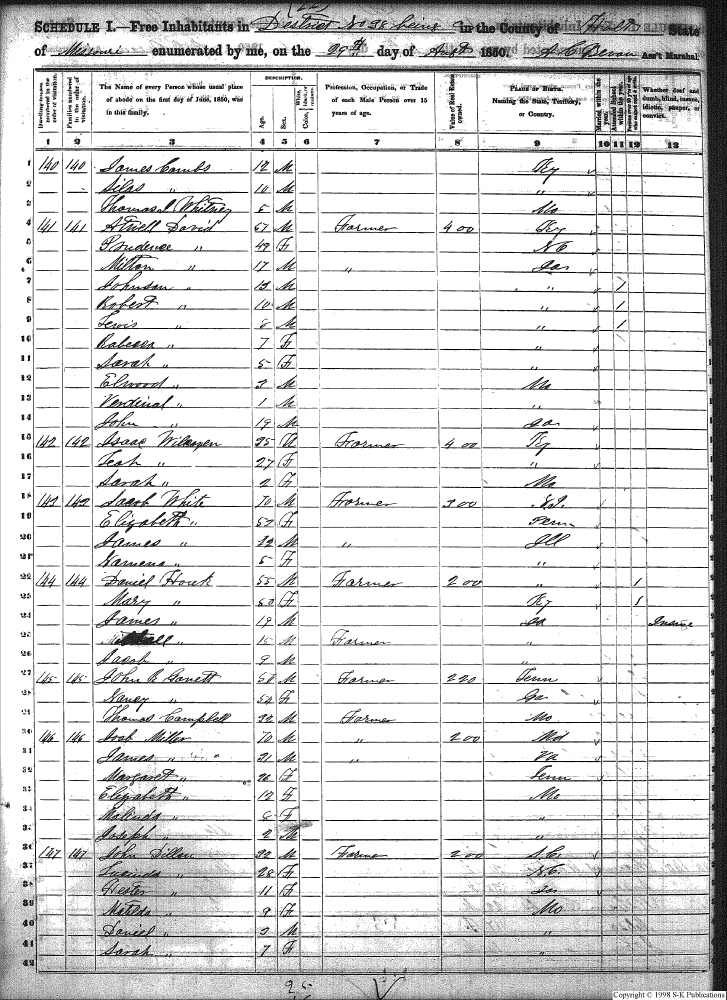 (22)
SCHEDULE I.—Free Inhabitants in District No 38 being in the County of Holt State
of Missouri enumerated by me, on the 29th day of Augt 1850. Ass't Marshal
DESCRIPTION.
Dwelling-houses numbered in the order of visitation.
Families numbered in the order of visitation.
The Name of every Person whose usual place of abode on the first day of June, 1850, was in this family.
Age.
Sex.
Color,
Profession, Occupation, or Trade of each Male Person over 15 years of age.
Value of Real Estate owned.
PLACE OF BIRTH. Naming the State, Territory, or Country.
Married within the year.
Attended School within the year.
Whether deaf and dumb, blind, insane, idiotic, pauper, or convict.
1 2 3 4 5 6 7 8 9 10 11 12 13
1 140 140 James Combs 12 M Ky
2 Silas " 10 M "
3 Thomas J Whitney 5 M Mo
4 141 141 David 67 M Farmer 400 Ky
5 Prudence " 49 F NC
6 Milton " 17 M "
7 Johnson " 13 M " 1
8 Robert " 10 M " 1
9 Lewis " 8 M " 1
10 Rabecca " 7 F "
11 Sarah " 5 F "
12 Elwood " 3 M Mo
13 Verdinal " 1 M "
14 John " 19 M
15 142 142 Isaac 35 M Farmer 400 Ky
16 Leah " 27 F "
17 Sarah " 2 F Mo
18 143 143 Jacob White 70 M Farmer 300
19 Elizabeth " 57 F Penn
20 James " 22 M " Ill
21 " 5 F "
22 144 144 Daniel Houk 55 M Farmer 200 " 1
23 Mary " 50 F Ky 1
24 James " 19 M Insane
25 " 15 M Farmer "
26 Jacob " 9 M "
27 145 145 John R Garrett 58 M Farmer 220 Tenn
28 Nancy " 54 F Ga
29 Thomas Campbell 22 M Farmer Mo
30 146 146 Miller 70 M " 200 Md
31 James " 31 M " Va
32 Margaret " 26 F Tenn
33 Elizabeth " 12 F Mo
34 Malinda " 6 F "
35 Joseph " 2 M "
36 147 147 John Dillon 32 M Farmer 200 S.C.
37 Lucinda " 28 F N.C.
38 Hester " 11 F
39 Matilda " 9 F Mo
40 Daniel " 3 M "
41 Sarah " 7 F "
42
25
Copyright © 1998 S-K Publications